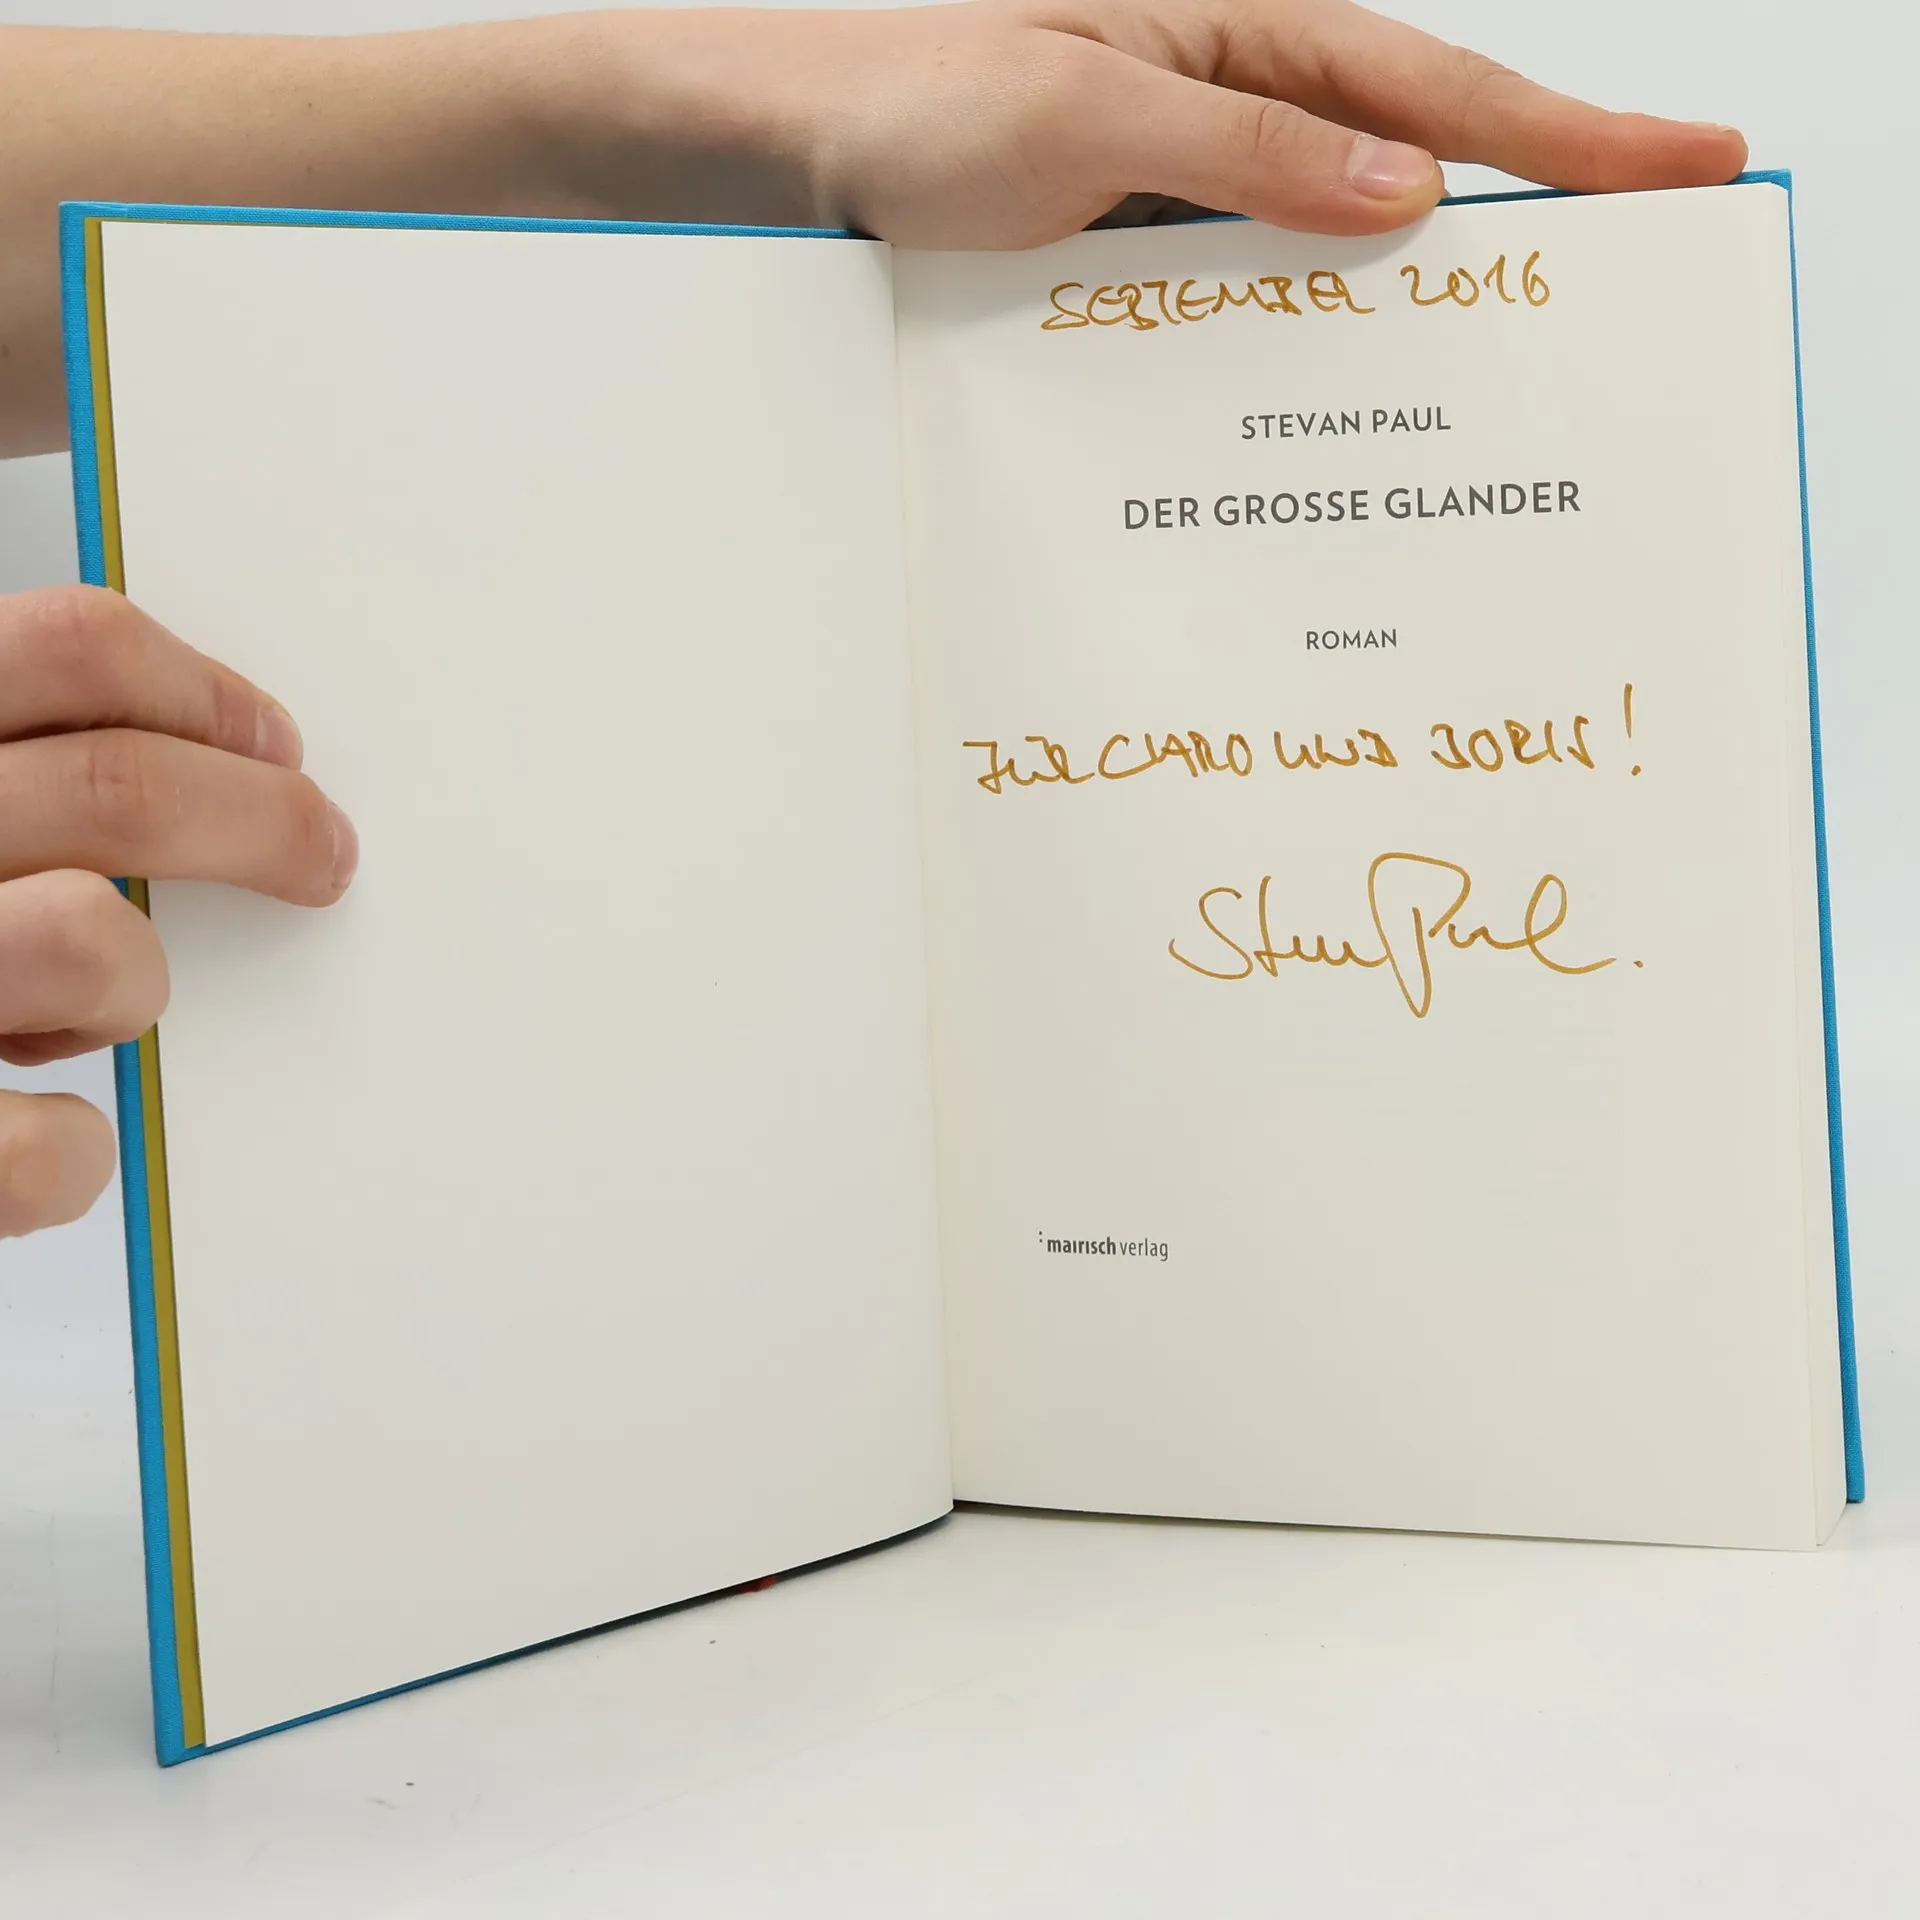 SEPTEMBER 2016
STEVAN PAUL
DER GROSSE GLANDER
ROMAN
FÜR CARO UND BORIS!
Stevan Paul.
mairisch verlag